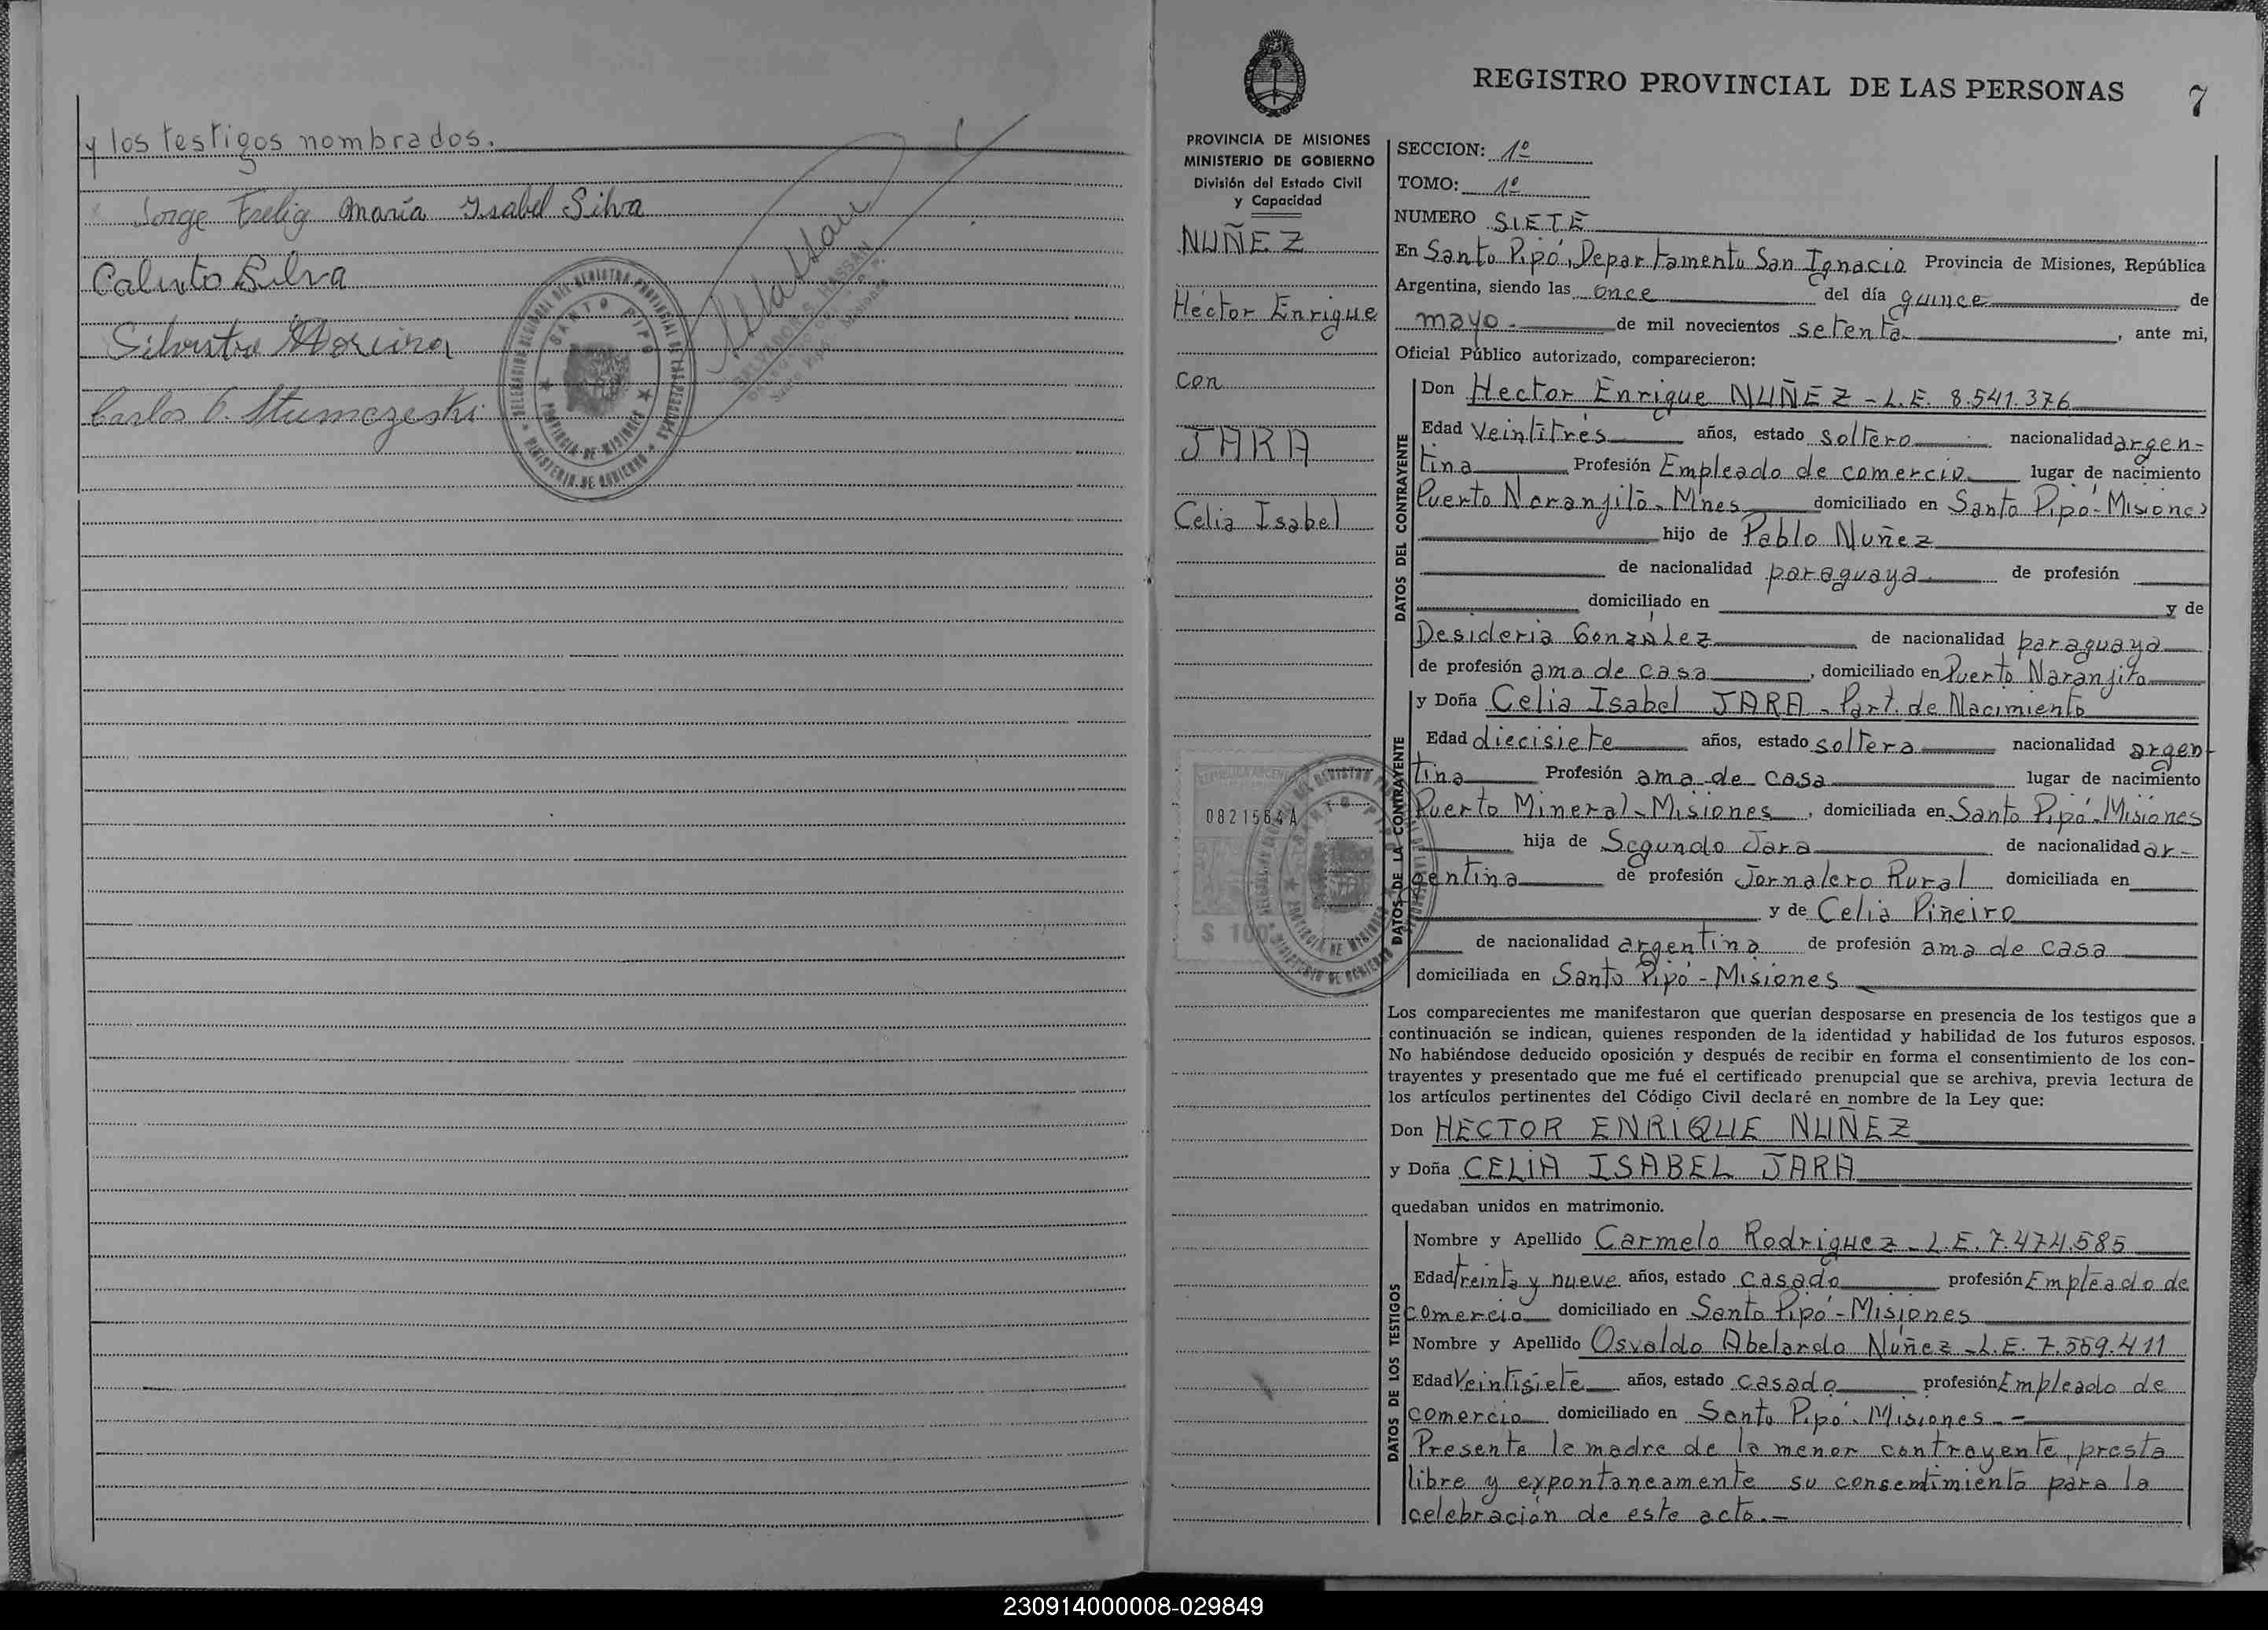 y los testigos nombrados.
Jorge María Isabel Silva
Silva
Silvestre
Carlos
DELEGACION REGIONAL DEL REGISTRO PROVINCIAL DE LAS PERSONAS
SANTO PIPO
PROVINCIA DE MISIONES
MINISTERIO DE GOBIERNO
SALVADOR S. HASSAN
Santo Pipó - Misiones
REGISTRO PROVINCIAL DE LAS PERSONAS
7
PROVINCIA DE MISIONES
MINISTERIO DE GOBIERNO
División del Estado Civil
y Capacidad
NUÑEZ
Héctor Enrique
con
JARA
Celia Isabel
0821564A
$ 100
SECCION: 1º
TOMO: 1º
NUMERO SIETE
En Santo Pipó, Departamento San Ignacio Provincia de Misiones, República
Argentina, siendo las once del día quince de
mayo. de mil novecientos setenta , ante mi,
Oficial Público autorizado, comparecieron:
DATOS DEL CONTRAYENTE
Don Hector Enrique NUÑEZ - L.E. 8.541.376
Edad Veintitrés años, estado soltero nacionalidad argen-
tina Profesión Empleado de comercio lugar de nacimiento
Puerto Naranjito - Mnes domiciliado en Santo Pipó - Misiones
hijo de Pablo Nuñez
de nacionalidad paraguaya de profesión
domiciliado en y de
Desideria Gonzàlez de nacionalidad paraguaya
de profesión ama de casa , domiciliado en Puerto Naranjito
DATOS DE LA CONTRAYENTE
y Doña Celia Isabel JARA - Part. de Nacimiento
Edad diecisiete años, estado soltera nacionalidad argen-
tina Profesión ama de casa lugar de nacimiento
Puerto Mineral - Misiones , domiciliada en Santo Pipó - Misiones
hija de Segundo Jara de nacionalidad ar-
gentina de profesión Jornalero Rural domiciliada en
y de Celia Piñeiro
de nacionalidad argentina de profesión ama de casa
domiciliada en Santo Pipó - Misiones
Los comparecientes me manifestaron que querían desposarse en presencia de los testigos que a
continuación se indican, quienes responden de la identidad y habilidad de los futuros esposos.
No habiéndose deducido oposición y después de recibir en forma el consentimiento de los con-
trayentes y presentado que me fué el certificado prenupcial que se archiva, previa lectura de
los artículos pertinentes del Código Civil declaré en nombre de la Ley que:
Don HECTOR ENRIQUE NUÑEZ
y Doña CELIA ISABEL JARA
quedaban unidos en matrimonio.
DATOS DE LOS TESTIGOS
Nombre y Apellido Carmelo Rodriguez - L.E. 7.474.585
Edad treinta y nueve años, estado casado profesión Empleado de
comercio domiciliado en Santo Pipó - Misiones
Nombre y Apellido Osvaldo Abelardo Núñez - L.E. 7.559.411
Edad Veintisiete años, estado casado profesión Empleado de
comercio domiciliado en Santo Pipó - Misiones -
Presente la madre de la menor contrayente, presta
libre y expontaneamente su consentimiento para la
celebración de este acto.-
230914000008-029849